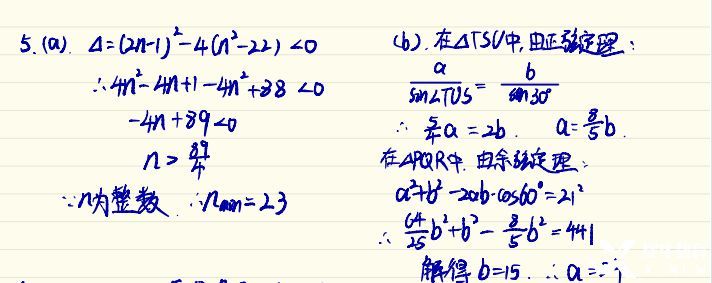 5. (a). Δ=(2n-1)²-4(n²-22)<0
∴4n²-4n+1-4n²+88<0
-4n+89<0
n>89/4
∵n为整数 ∴n min=23
(b). 在△TSU中,由正弦定理:
a/sin∠TUS = b/sin30°
∴ 5/4 a=2b. a=8/5 b.
在△PQR中.由余弦定理:
a²+b²-2ab·cos60°=21²
∴ 64/25 b²+b²-8/5 b²=441
解得 b=15. ∴a=